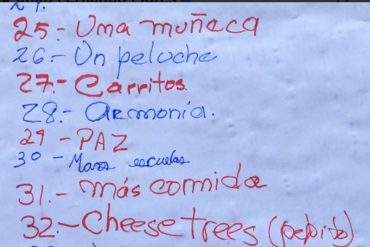 24.
25.- Uma muñeca
26.- Un peluche
27.- Carritos
28.- armonía.
29 - PAZ
30 - escuelas
31.- más comida
32.- Cheese trees (pepito)